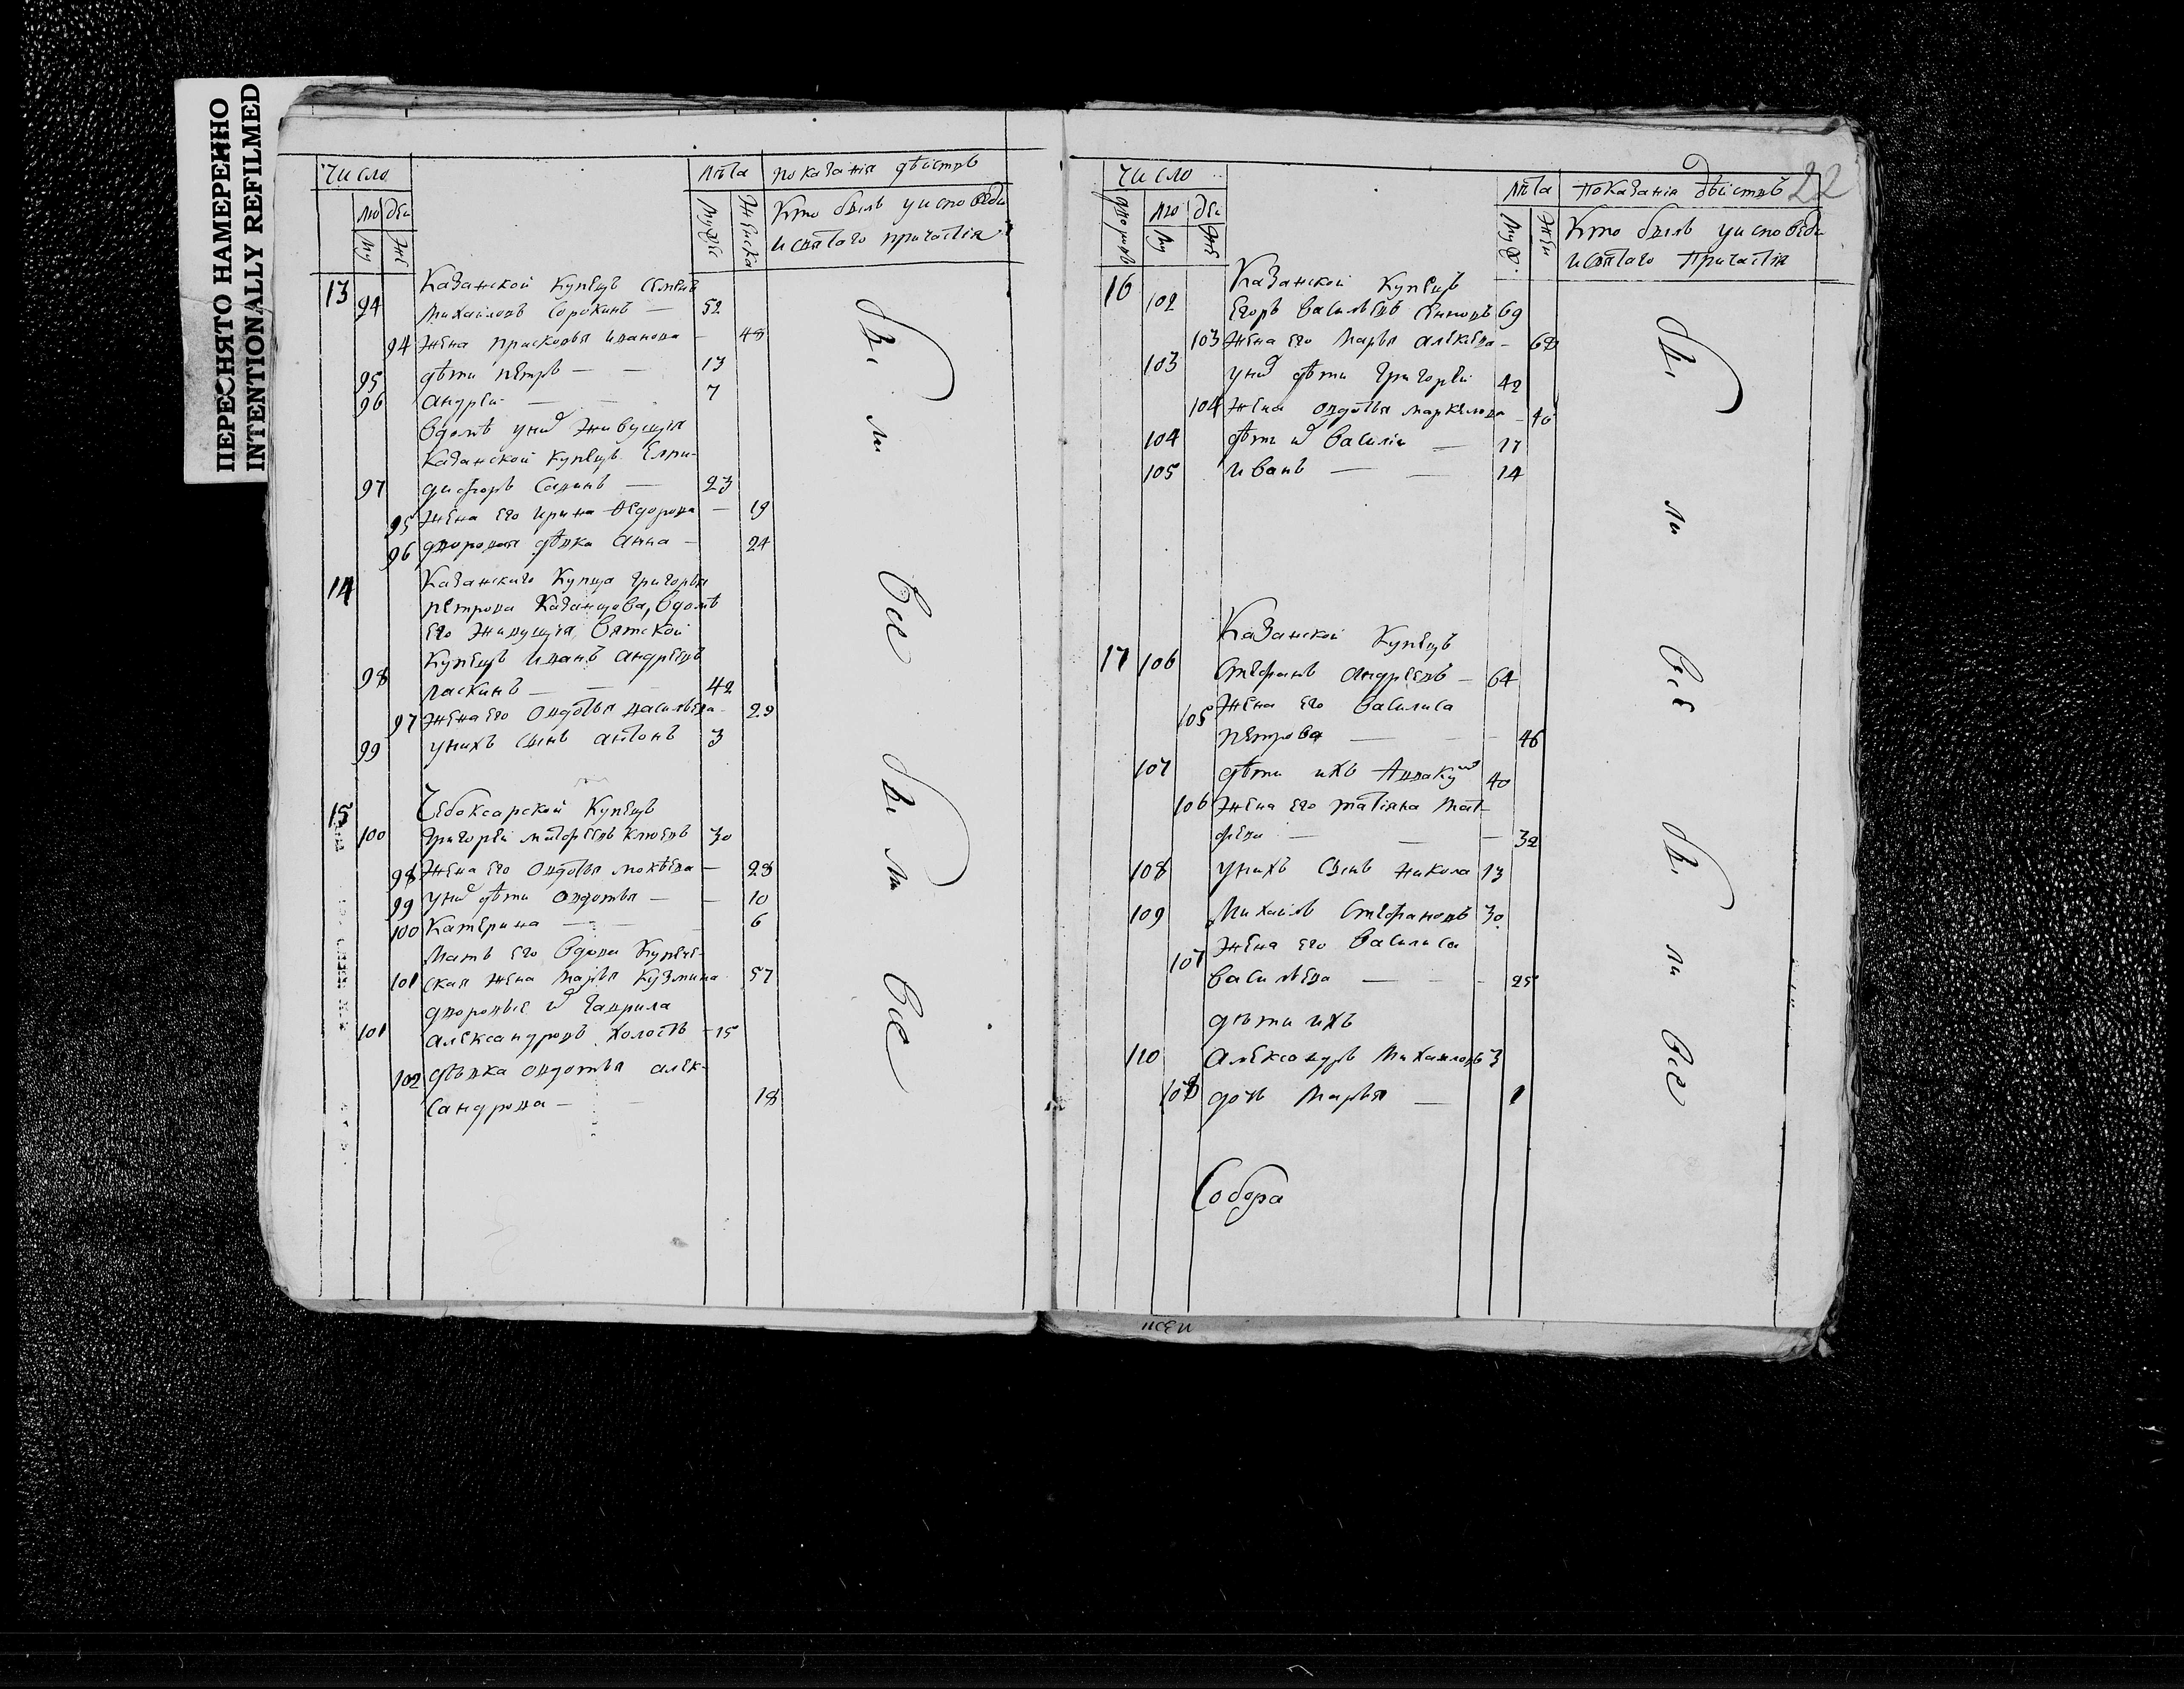 ПЕРЕСНЯТО НАМЕРЕННО
INTENTIONALLY REFILMED
Число
Лѣта
показанія дѣйствъ
лю дѣи
му же
мужес
женска
Кто былъ у исповѣди
и святаго причастія
13
Казанской купецъ Семенъ
94 Михайловъ Сорокинъ — 52
94 жена Прасковья Иванова — 48
95 дѣти Петръ — — 13
96 Андрей — — 7
в домѣ у них живущія
Казанской купецъ Елпи-
97 дифоръ Савинъ — 23
95 жена его Ирина Ѳедорова — 19
96 дворовая дѣвка Анна — 24
14
Казанскаго купца Григорья
Петрова Казанцова, в домѣ
его живущія Вятской
купецъ Иванъ Андреевъ
98 Ласкинъ — — — 42
97 жена его Овдотья Васильева 29
99 у нихъ сынъ Антонъ 3
15
Чебоксарской купецъ
100 Григорей Матфеевъ Клюевъ 30
98 жена его Овдотья Мокѣева — 28
99 у них дѣти Овдотья — — 10
100 Катерина — — — 6
Мать его вдова купече-
101 ская жена Марья Кузмина 57
дворовые их Гаврила
101 Александровъ холостъ — 15
102 дѣвка Овдотья Алек-
сандрова — — 18
Были всѣ
Были всѣ
22
Число
Лѣта
показанія дѣйствъ
дворовъ
лю дѣи
му же
муж.
жен
Кто былъ у исповѣди
и святаго причастія
16
Казанской купецъ
102 Егоръ Васильевъ 69
103 жена его Марья Алекѣева —
103 у них дѣти Григорей 42
104 жена Овдотья Маркелова — 40
104 дѣти их Василей — 17
105 Иванъ — — 14
17
Казанской купецъ
106 Стефанъ Андреевъ — 64
105 жена его Василиса
Петрова — — — 46
107 дѣти ихъ Аввакум 40
106 жена его Татіяна Мат-
фѣева — — — 32
108 у нихъ сынъ Никола 13
109 Михайло Стефановъ 30
107 жена его Василиса
Васильева — — — 25
дѣти ихъ
110 Александръ Михаиловъ 3
108 дочь Марья — 1
Были всѣ
Были всѣ
Собора